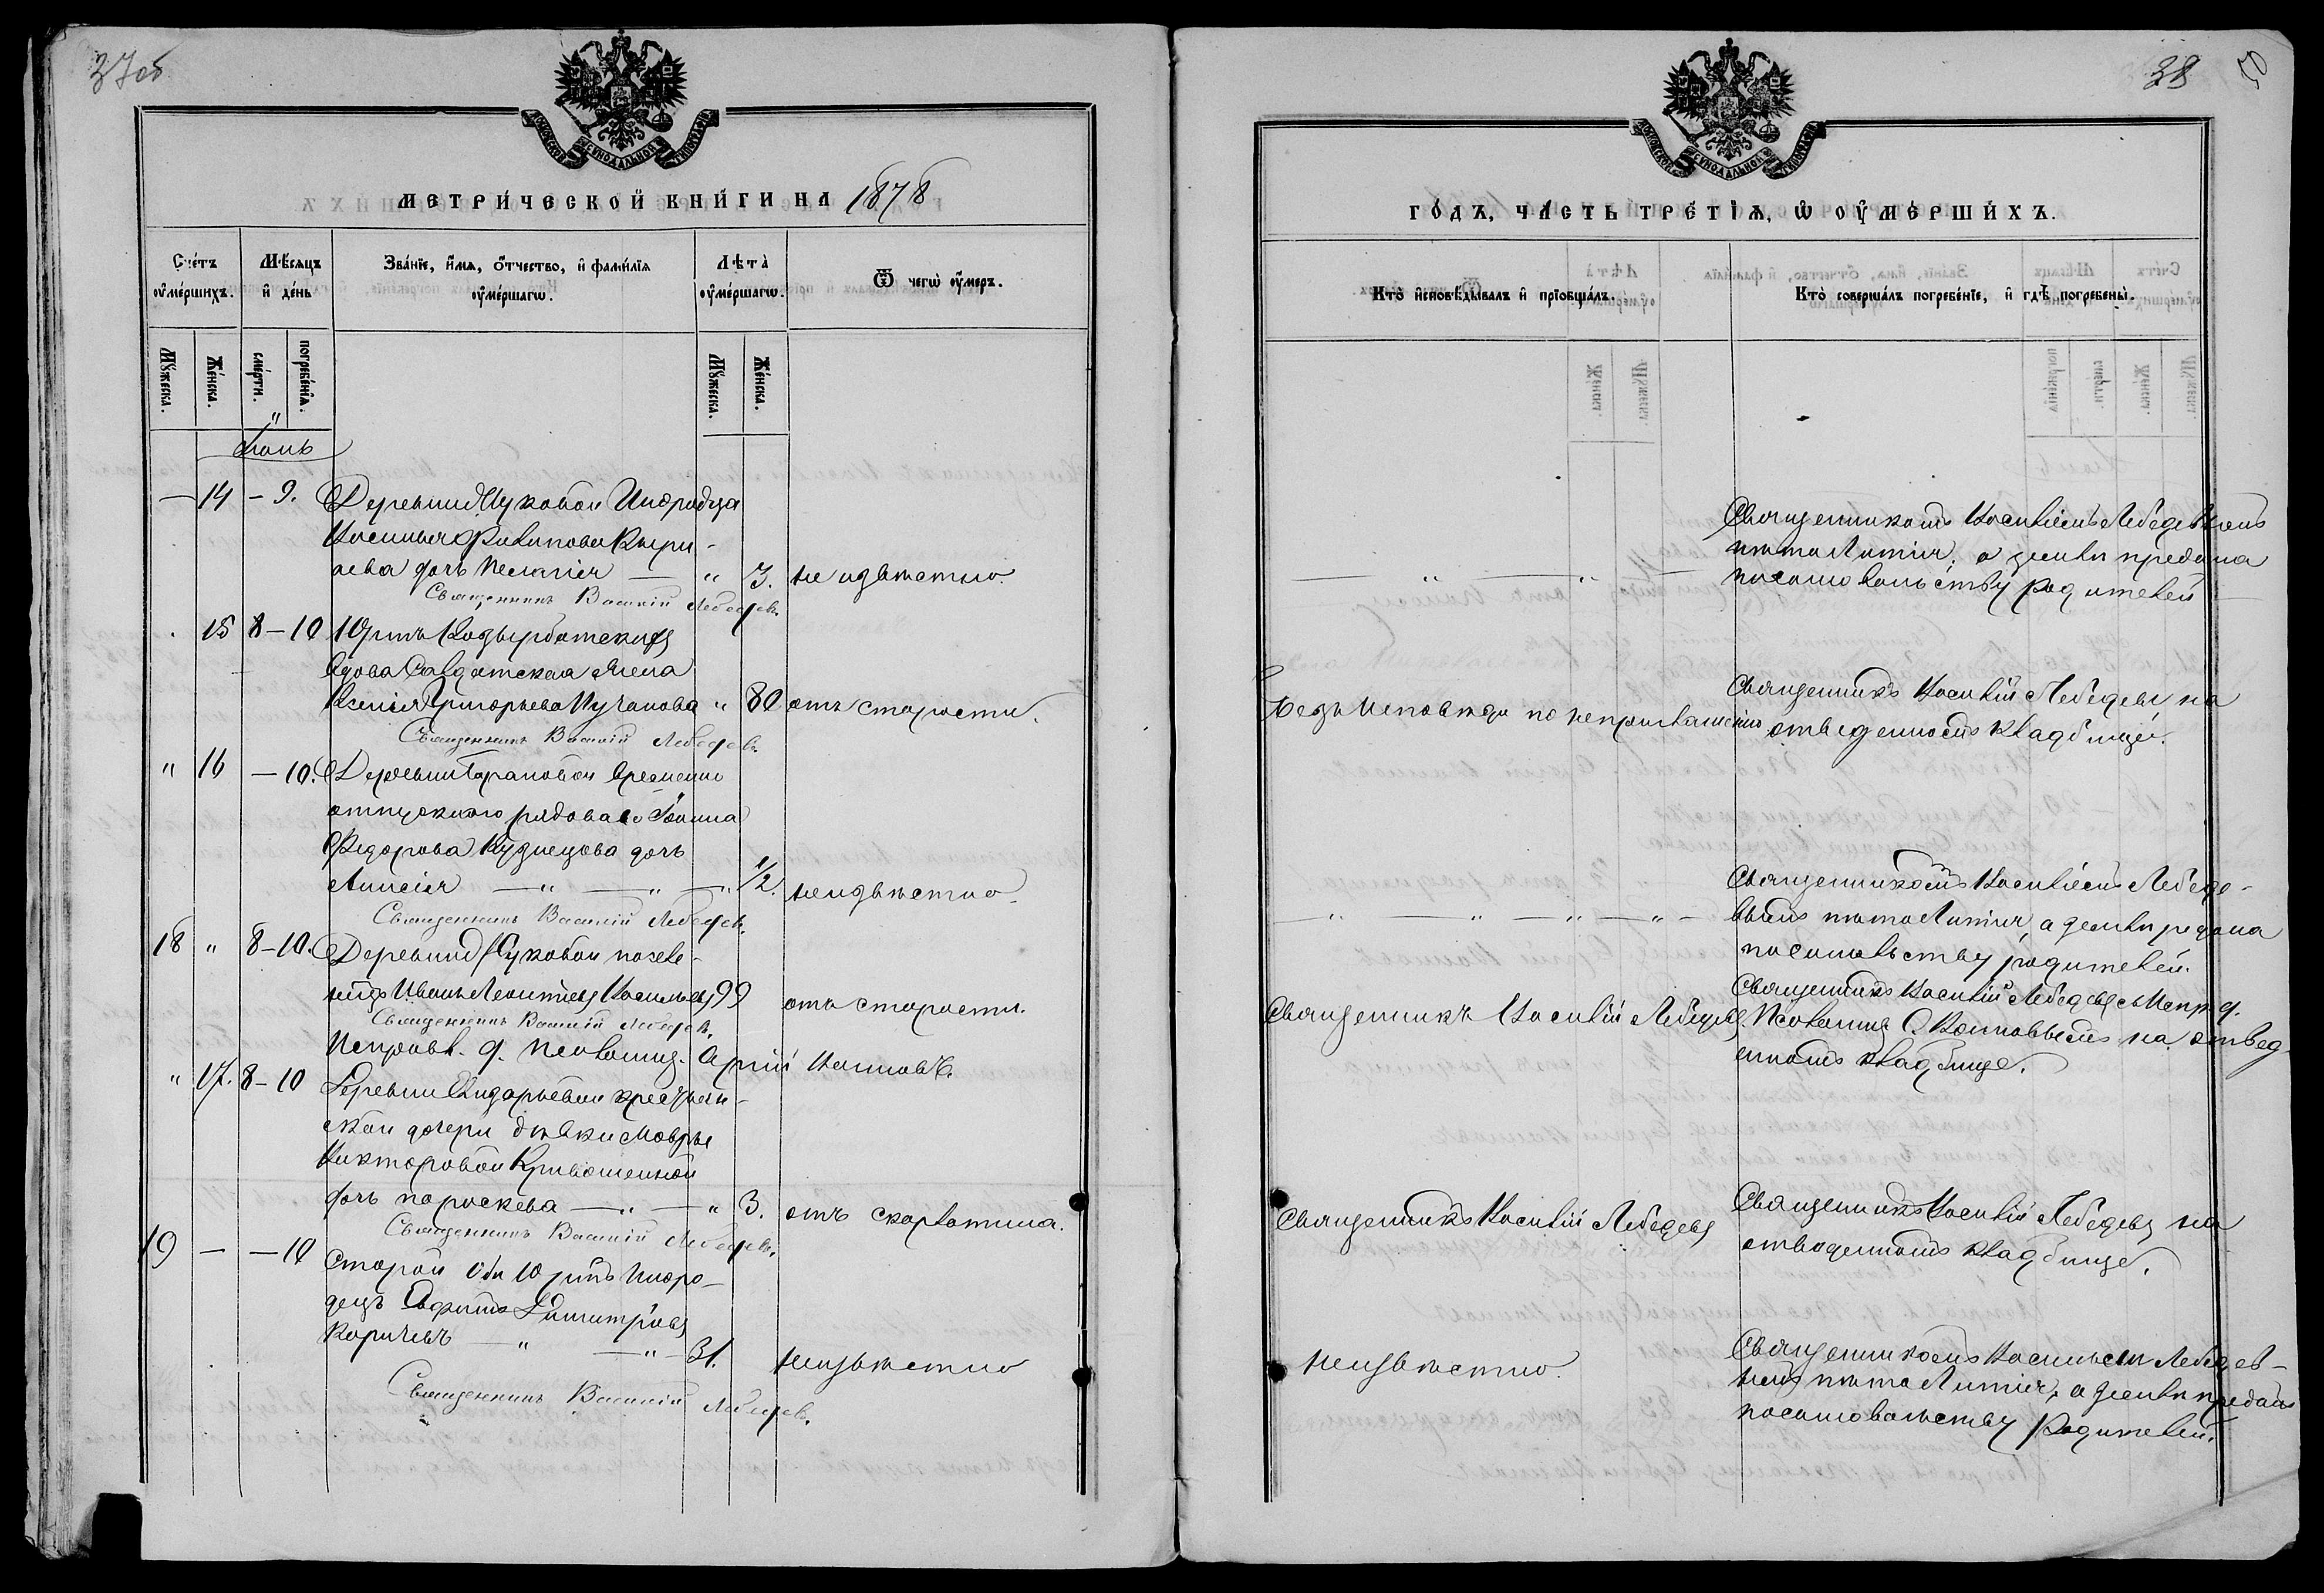 37об
МОСКОВСКОЙ СѴНОДАЛЬНОЙ ТИПОГРАФІИ
МЕТРИ́ЧЕСКОЙ КНИ́ГИ НА 1878
Сче́тъ ѹ҆ме́ршихъ.
Мѣ́сяцъ и҆ де́нь
Зва́нїе, и҆́мѧ, ѻ҆́тчество, и҆ фамилїѧ ѹ҆ме́ршагѡ.
Лѣта̀ ѹ҆ме́ршагѡ.
Ѿ чегѡ̀ ѹ҆́меръ.
Мꙋ́жеска.
Же́нска.
сме́рти.
погребе́нїѧ.
Мꙋ́жеска.
Же́нска.
Іюль
— 14 — 9. Деревни Инородца
Василья Филипова Кыри-
аева дочь — " 3. не извѣстно.
Священникъ Василій Лебедевъ.
15 8–10 Юртъ
вдова Салдатская жена
Ксенія Григорьева " 80 отъ старости.
Священникъ Василій Лебедевъ.
" 16 — 10. Деревни временно
отпускного рядоваго Іоанна
Федорова Кузнецова дочь
— " — " — " 1/2. неизвѣстно.
Священникъ Василій Лебедевъ.
18 " 8–10. Деревни поселе-
нецъ Иванъ Леонтіевъ Васильевъ 99 отъ старости.
Священникъ Василій Лебедевъ.
Исправл. д. Псаломщ.
" 17. 8–10 Деревни крестьян-
ской дочери дѣвки Мавры
Викторовой Кривошеиной
дочь параскева — " — " 3. отъ скарлатина.
Священникъ Василій Лебедевъ.
19 — — 10 Старой Оби Юртъ Иноро-
децъ Димитріевъ
— " — " 31. неизвѣстно
Священникъ Василій Лебедевъ.
38
МОСКОВСКОЙ СѴНОДАЛЬНОЙ ТИПОГРАФІИ
ГО́ДЪ, ЧА́СТЬ ТРЕ́ТЇѦ, Ѡ ОУ҆МЕ́РШИХЪ.
Кто̀ и҆сповѣ́дывалъ и҆ прїѡбща́лъ.
Кто̀ соверша́лъ погребе́нїе, и҆ гдѣ̀ погребены̀.
Священникомъ Василіемъ Лебедевымъ
пѣта Литія, а земли предана
по самовольству родителей
Безъ исповѣди по неприглашенію
Священникъ Василій Лебедевъ на
отведенномъ кладбище.
Священникомъ Василіемъ Лебеде-
вымъ пѣта Литія, а земли предана
по самовольству родителей.
Священникъ Василій Лебедевъ.
Священникъ Василій Лебедевъ съ Испр. д.
Псаломщ. на отвед-
енномъ кладбище.
Священникъ Василій Лебедевъ
Священникъ Василій Лебедевъ на
отведенномъ кладбище.
неизвѣстно.
Священникомъ Васильемъ Лебедев-
ымъ пѣта Литія, а земли преданъ
по самовольству Родителей.